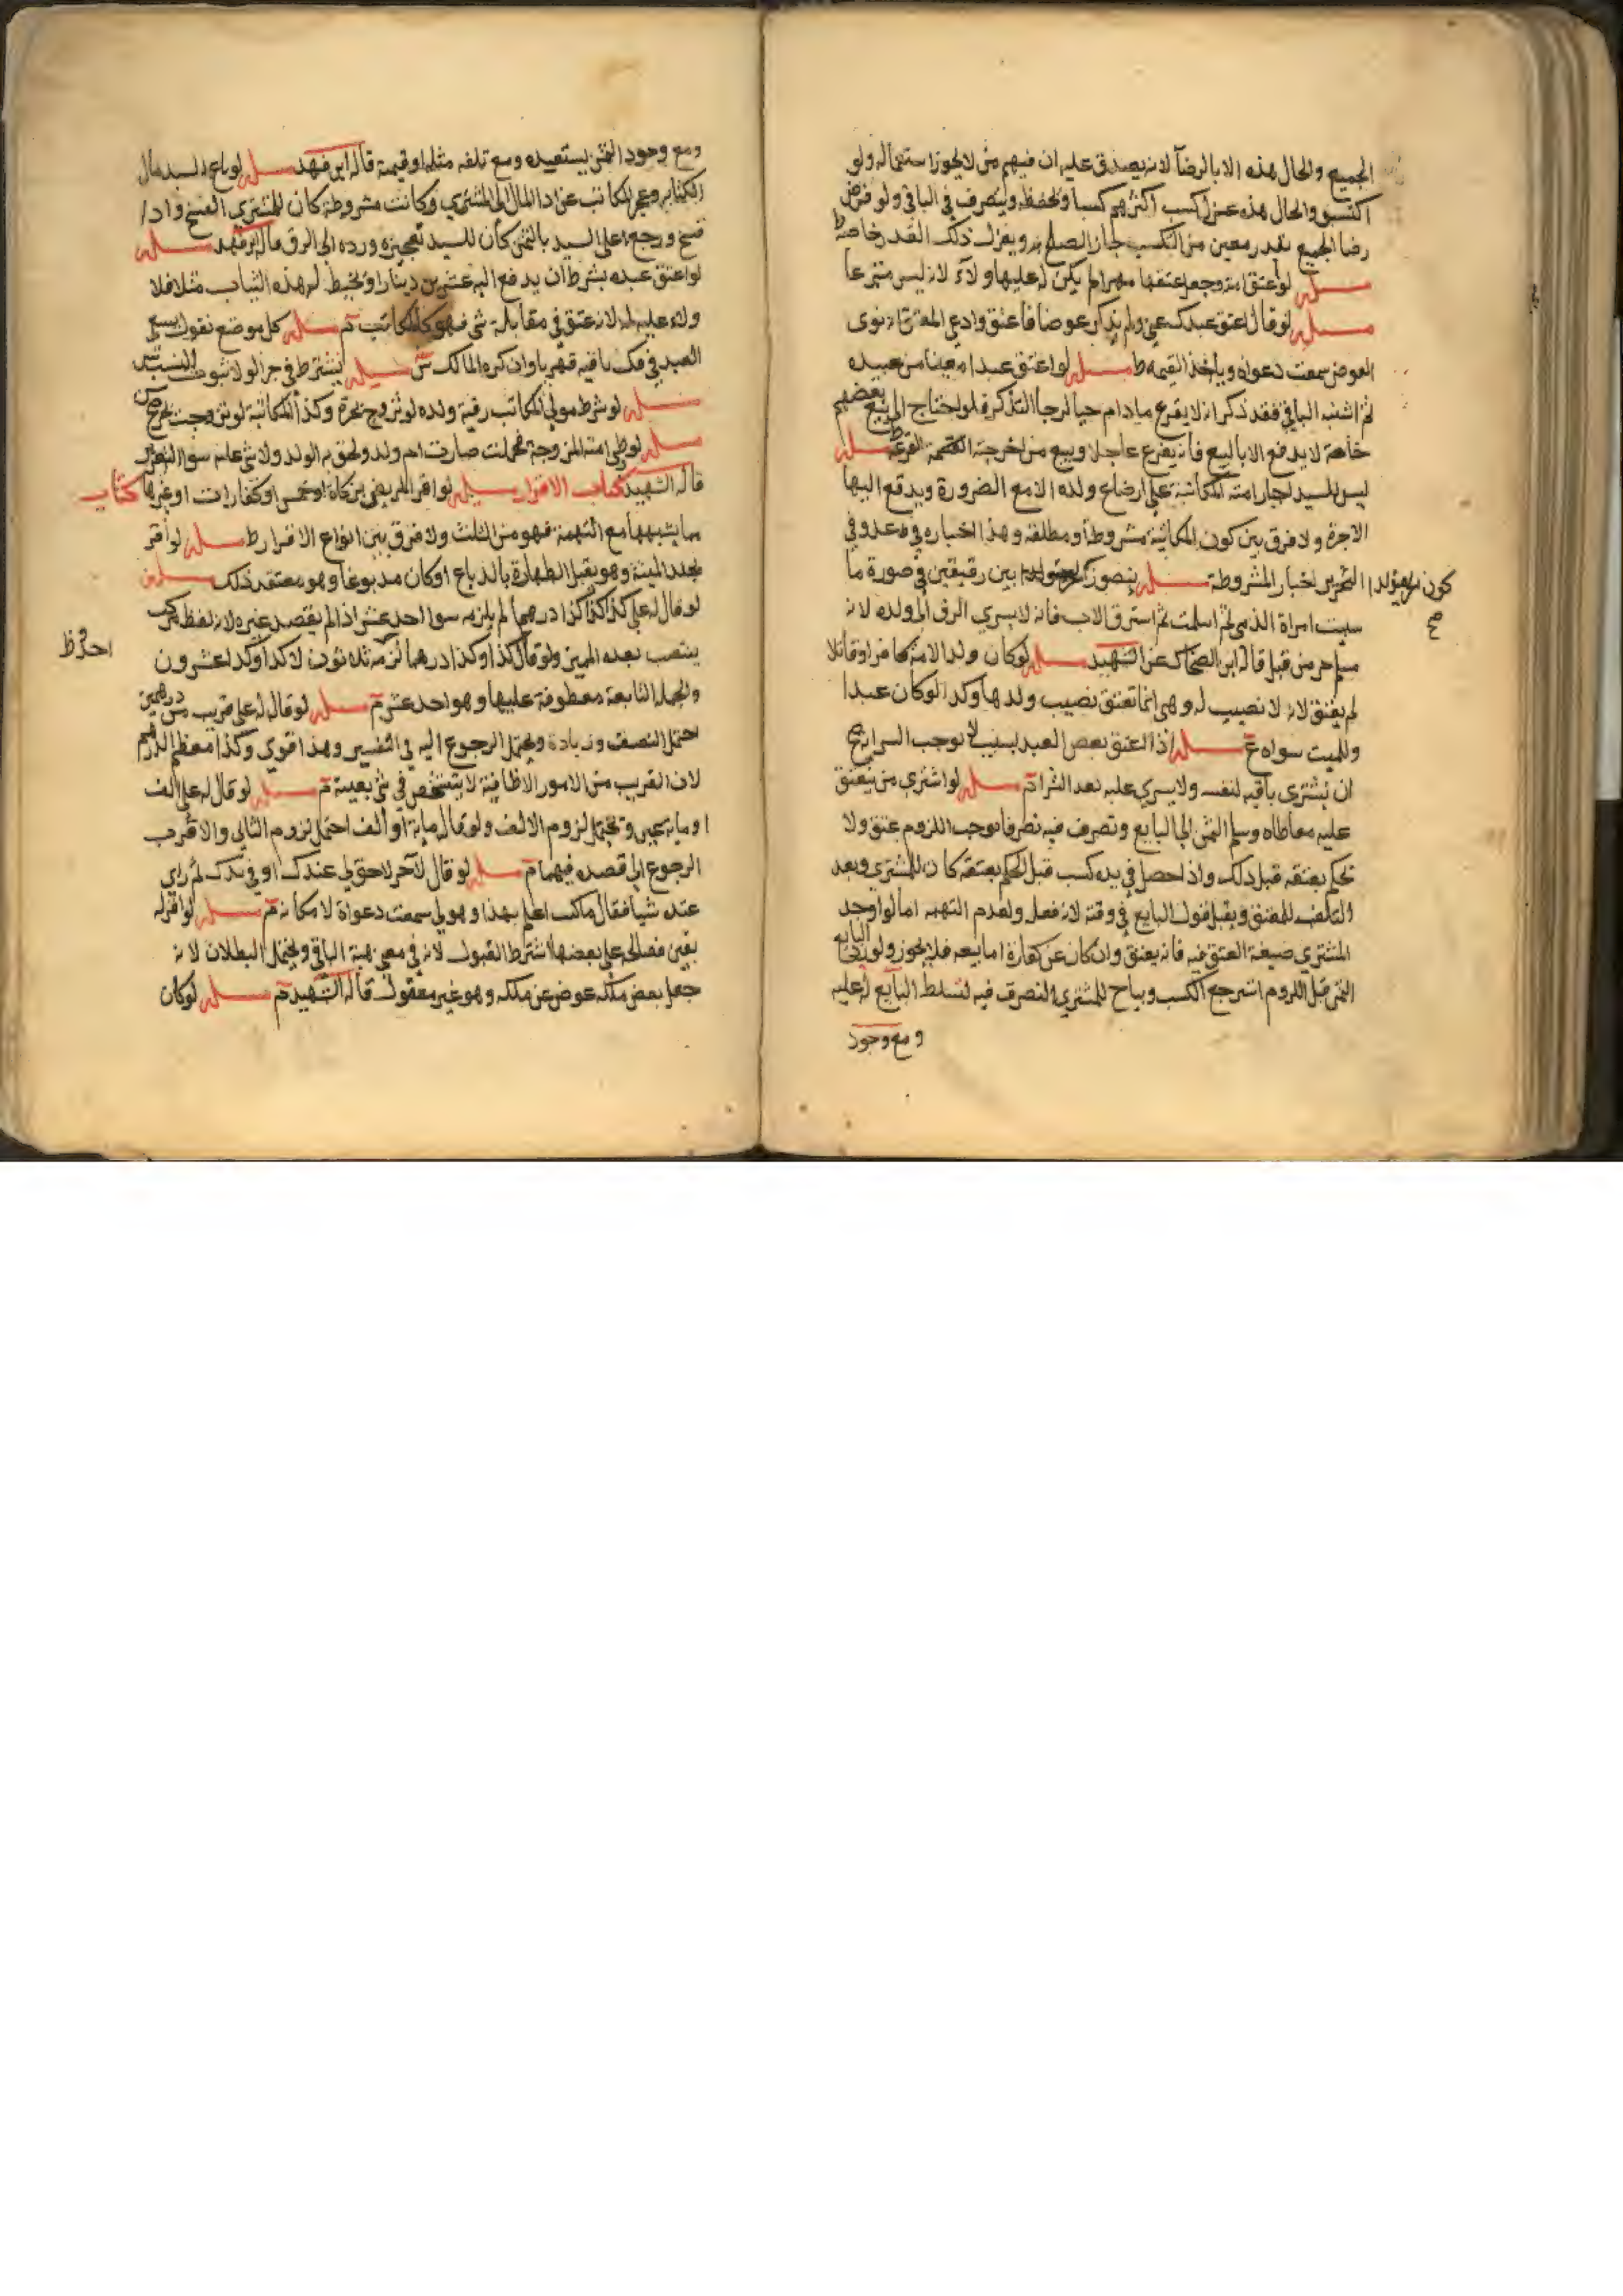 الجميع والحال هذه الا بالرضا لانه يصدق عليه ان فيهم من لا يجوز استعماله ولو
اكتسبوا والحال هذه عزل كسب اكثرهم كسبا ويحفظ ويتصرف في الباقي ولو فرض
رضا الجميع بقدر معين من التكسب جاز الصلح ويعزل ذلك القدر خاصة ط
مسله لو اعتق امته وجعل عتقها مهرا لم يكن له عليها ولاء لانه ليس متبرعا
مسله لو قال اعتق عبدك عني ولم يذكر عوضا فاعتق وادعى المعتق انه نوى
العوض سمعت دعواه وياخذ القيمه ط مسله لو اعتق عبدا معينا من عبيده
ثم اشتبه الباقي فقد ذكر انه لا يقرع ما دام حيا لرجا التذكر فلو احتاج الى بيع بعضهم
خاصة لا يدفع الا بالبيع فانه يقرع عاجلا ويبيع من اخرجته القرعة مسله
ليس للسيد اجبار امته المكاتبة على ارضاع ولده الا مع الضرورة ويدفع اليها
الاجرة ولا فرق بين كون المكاتبة مشروطة او مطلقه وهذا اخباره في قواعده وفي
التحرير اخبار المشروطة مسله يتصور بين رقيقين في صورة ما
كون الحر يولد
صح
سبيت امراة الذمي ثم اسلمت ثم استرق الاب فانه لا يسري الرق الى ولده لانه
مسلم حر من قبل قاله ابن الضحاك عن الشهيد مسله لو كان ولد الامة كافرا او قاتلا
لم يعتق لانه لا نصيب له وهي انما تعتق نصيب ولدها وكذا لو كان عبدا
وللميت سواه ع مسله اذا انعتق بعض العبد بسبب لا يوجب السراية صح
ان يشترى باقيه لنفسه ولا يسري عليه بعد الشرا م مسله لو اشترى من ينعتق
عليه معاطاه وسلم الثمن الى البايع وتصرف فيه تصرفا موجب اللزوم عتق ولا
نحكم بعتقه قبل ذلك واذا حصل في يده كسب قبل الحكم بعتقه كان للمشتري وبعد
التلف للمعتق ويقبل قول البايع في وقته لانه فعله ولعدم التهمه اما لو اوجد
المشتري صيغة العتق فيه فانه يعتق وان كان عن كفارة اما بيعه فلا يجوز ولو
الثمن قبل اللزوم استرجع الكسب ويباح للمشتري التصرف فيه لتسلط البايع له عليه
ومع وجود
ومع وجود الثمن يستعيده ومع تلفه مثله او قيمته قاله ابن فهد مسله لو باع السيد مال
الكتابه وعجز المكاتب عن ادا المال الى المشتري وكانت مشروطة كان للمشترى الفسخ واذا
فسخ ورجع على السيد بالثمن كان للسيد تعجيزه ورده الى الرق قاله ابن فهد مسله
لو اعتق عبده بشرط ان يدفع اليه عشرين دينارا او يخيط له هذه الثياب مثلا فلا
ولاء عليه له لانه عتق في مقابلة شي فهو كالمكاتب م مسله كل موضع نقول يسعى
العبد في فك باقيه قهريا وان كره المالك ش مسله يشترط في جر الولا ثبوت النسب
مسله لو شرط مولى المكاتب رقية ولده لو تزوج بحرة وكذا المكاتبة لو تزوجت بحر صح
مسله لو وطى امته المزوجة فحملت صارت ام ولد ولحق به الولد ولا شي عليه سوا التعزير
قاله الشهيد كتاب الاقرار مسله لو اقر المريض بزكاة او خمس او كفارات او غيرها كتاب
مما يشبهها مع التهمة فهو من الثلث ولا فرق بين انواع الاقرار ط مسله لو اقر
بجلد الميتة وهو يقبل الطهارة بالدباغ او كان مدبوغا وهو معتقد ذلك مسله
لو قال له علي كذا كذا درهما لم يلزمه سوا احد عشر اذا لم يقصد غيره لانه لفظ مركب
ينتصب بعده المميز ولو قال كذا وكذا وكذا درهما لزمه ثلاثون لا كذا وكذا عشرون
احد وظ
والجمل التابعة معطوفة عليها وهو احد عشر م مسله لو قال له علي قريب من درهمين
احتمل النصف وزيادة ويحتمل الرجوع اليه في التفسير وهذا اقوى وكذا معظم الدرهم
لان القريب من الامور الاظافية لا يتشخص في شي بعينه م مسله لو قال له علي الف
او ماية عين ويحتمل لزوم الالف ولو قال ماية او الف احتمل لزوم الثاني والاقرب
الرجوع الى قصده فيهما م مسله لو قال لآخر لا حق لي عندك او في يدك ثم راى
عنده شيا فقال ما كنت اعلم بهذا وهو لي سمعت دعواه لامكانه م مسله لو اقر له
بعين فصالحه على بعضها اشترط القبول لانه في معنى هبة الباقي ويحتمل البطلان لانه
جعل بعض ملكه عوض عن ملكه وهو غير معقول قاله الشهيد م مسله لو كان